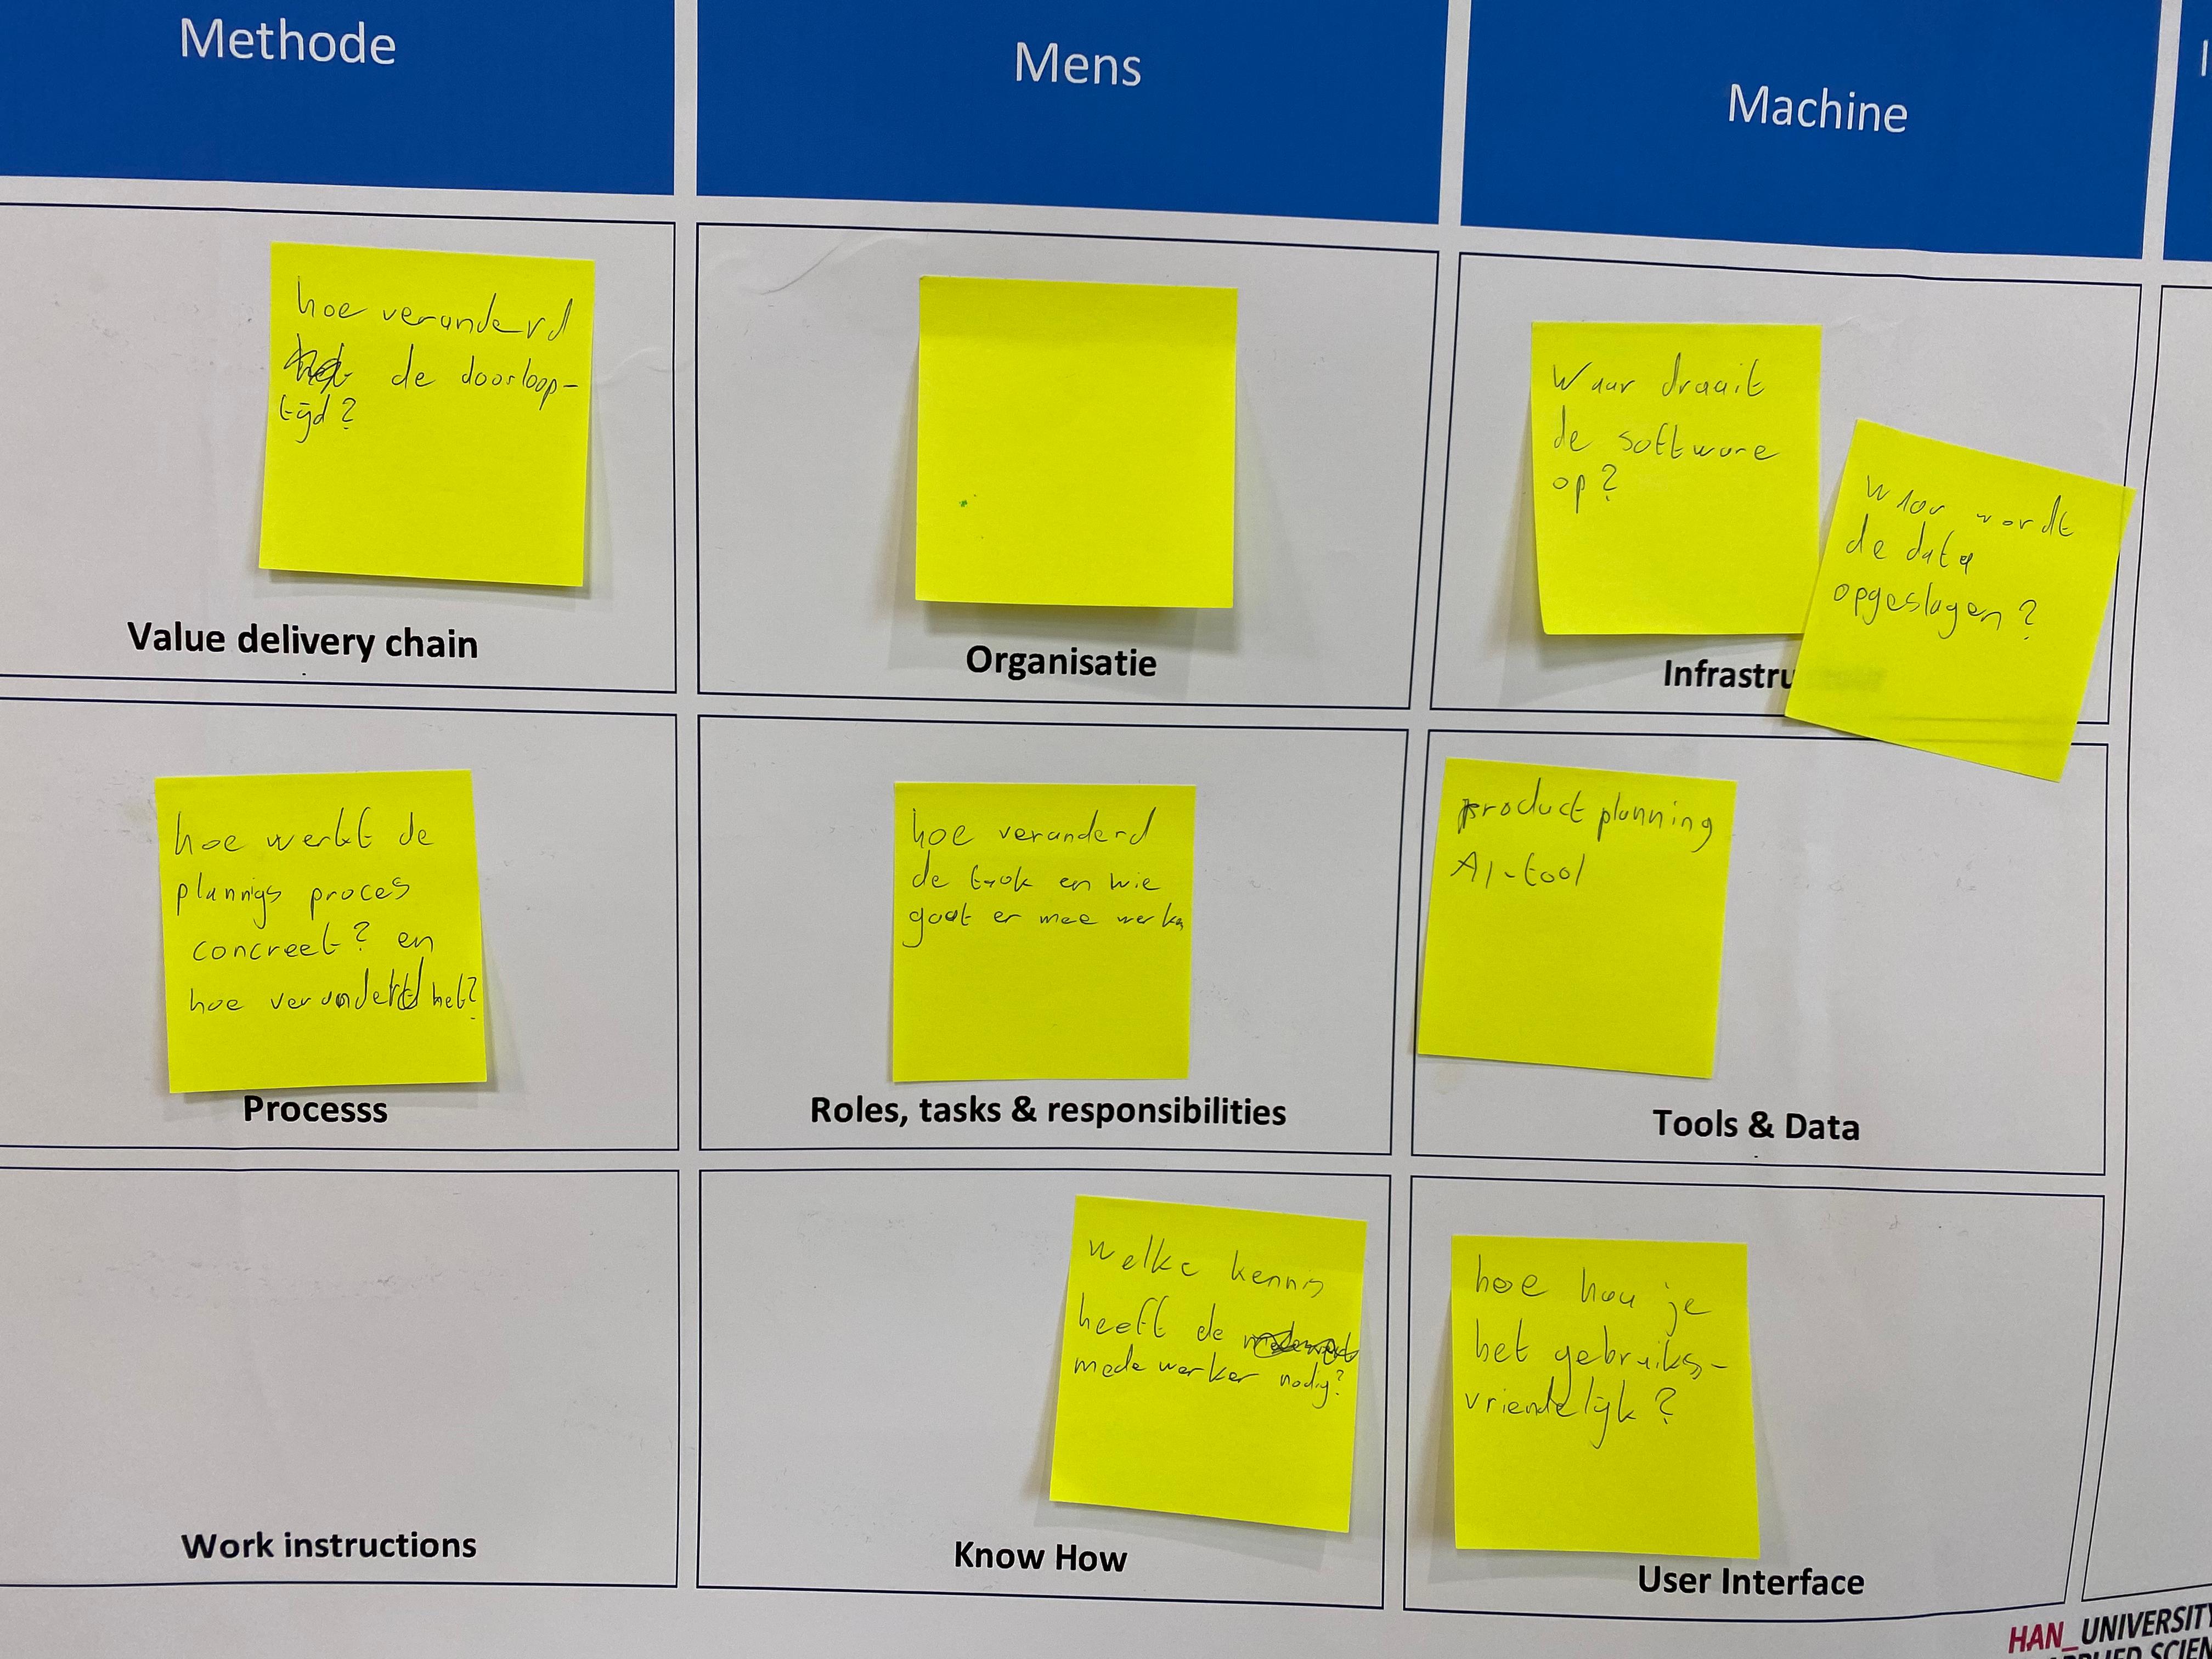 Methode
Mens
Machine
hoe veranderd
de doorloop-
tijd?
Value delivery chain
Organisatie
Waar draait
de software
op?
Waar wordt
de data
opgeslagen?
Infrastru
hoe werkt de
plannigs proces
concreet? en
hoe veranderd het?
Processs
hoe veranderd
de taak en wie
gaat er mee werken
Roles, tasks & responsibilities
product planning
AI-tool
Tools & Data
Work instructions
welke kennis
heeft de
medewerker nodig?
Know How
hoe hou je
het gebruiks-
vriendelijk?
User Interface
HAN_UNIVERSITY
APPLIED SCIEN